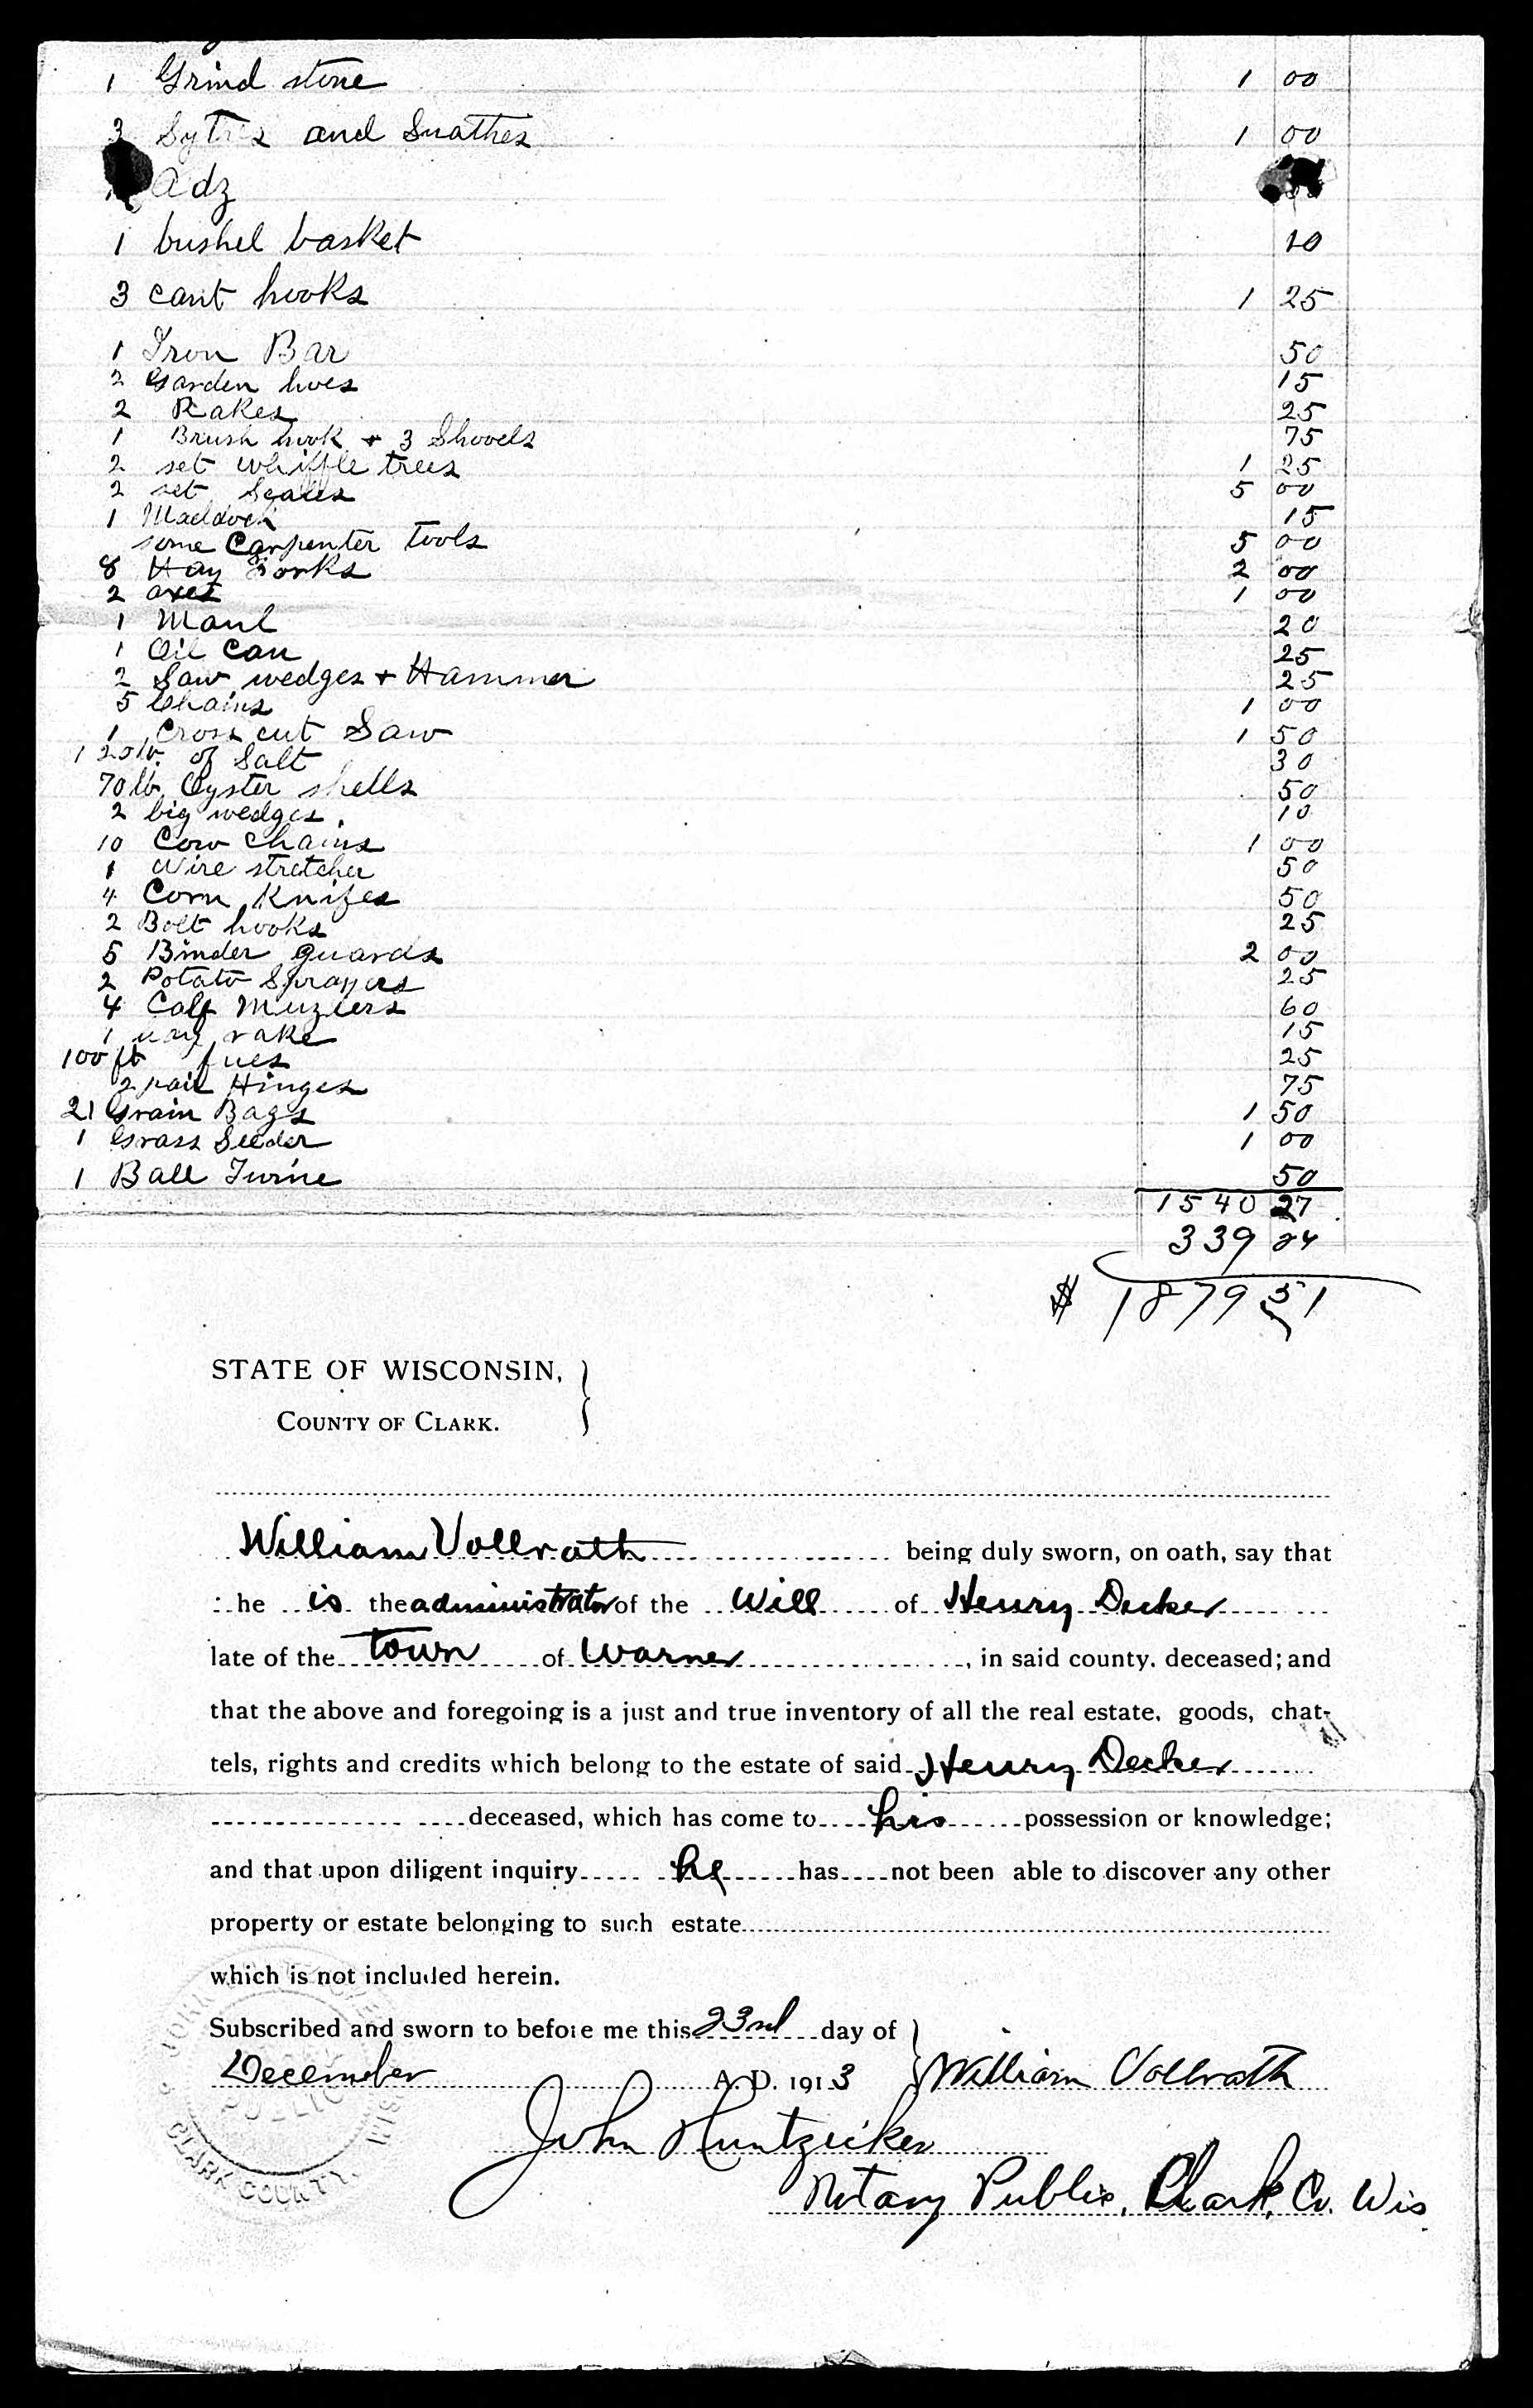 1 Grind stone 1 00
3 Sythes and Snathes 1 00
Adz
1 bushel basket 10
3 cant hooks 1 25
1 Iron Bar 50
2 Garden hoes 15
2 Rakes 25
1 Brush hook + 3 Shovels 75
2 set whiffle trees 1 25
2 set Scales 5 00
1 Maddock 15
some Carpenter Tools 5 00
8 Hay Forks 2 00
2 axes 1 00
1 Maul 20
1 Oil Can 25
2 Saw wedges + Hammer 25
5 Chains 1 00
1 Cross cut Saw 1 50
120 lb. of Salt 30
70 lb. Oyster shells 50
2 big wedges. 10
10 Cow Chains 1 00
1 Wire stretcher 50
4 Corn Knifes 50
2 Bolt hooks 25
5 Binder guards 2 00
2 Potato Sprayers 25
4 Calf Muzlers 60
1 hay rake 15
100 ft fues 25
2 pair Hinges 75
21 Grain Bags 1 50
1 Grass Seeder 1 00
1 Ball Twine 50
1540 27
339 24
$ 1879 51
STATE OF WISCONSIN,
COUNTY OF CLARK.
William Vollrath being duly sworn, on oath, say that
he is the administrator of the Will of Henry Decker
late of the Town of Warner, in said county. deceased; and
that the above and foregoing is a just and true inventory of all the real estate, goods, chat-
tels, rights and credits which belong to the estate of said Henry Decker
deceased, which has come to his possession or knowledge;
and that upon diligent inquiry he has not been able to discover any other
property or estate belonging to such estate
which is not included herein.
Subscribed and sworn to before me this 23rd day of
December A. D. 1913 William Vollrath
John Huntzicker
Notary Public, Clark, Co. Wis.
CLARK COUNTY,